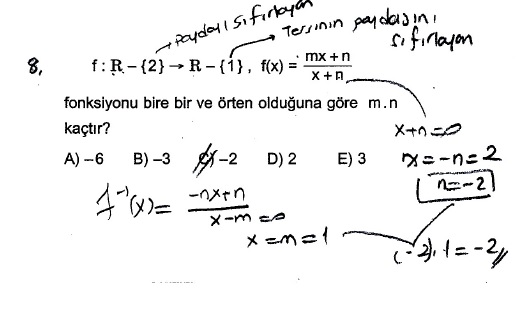 paydayı sıfırlayan
Tersinin paydasını
sıfırlayan
8, f : R – {2} → R – {1} , f(x) = mx + n / x + n
fonksiyonu bire bir ve örten olduğuna göre m.n
kaçtır?
A) –6 B) –3 C) –2 D) 2 E) 3
x+n=0
x=-n=2
n=-2
f⁻¹(x)= -nx+n / x-m =0
x=m=1
(-2).1=-2